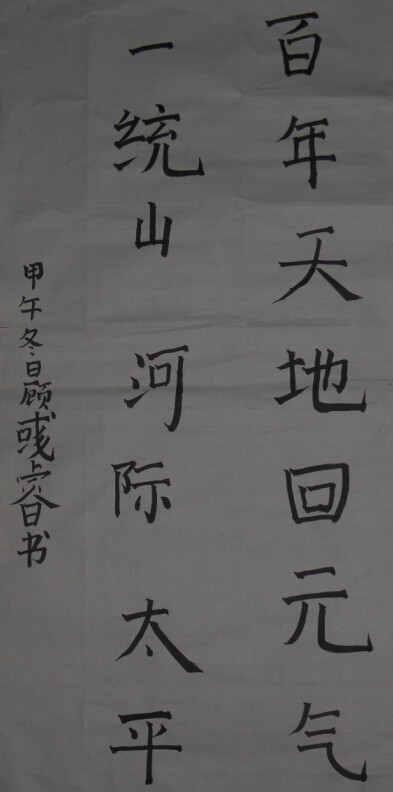 百年天地回元气
一统山河际太平
甲午冬日顾彧睿书